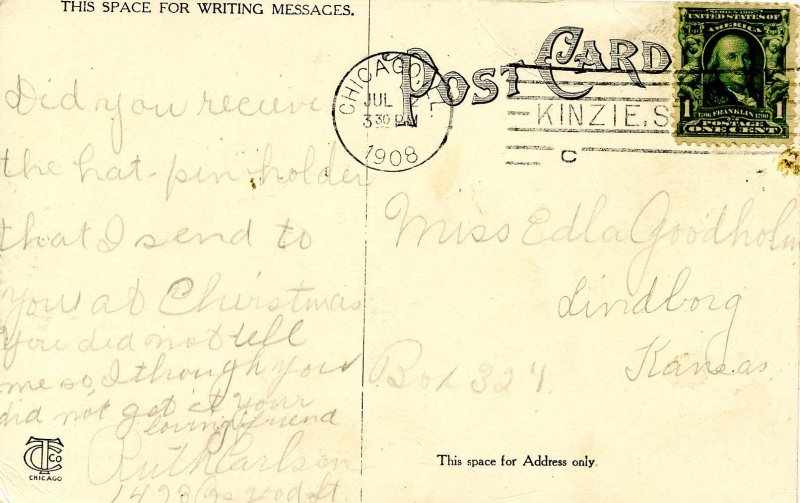 THIS SPACE FOR WRITING MESSAGES.
POST CARD
CHICAGO, ILL.
JUL 2
3 30 PM
1908
KINZIE. S
C
SERIES 1902
UNITED STATES OF AMERICA
1 1706 FRANKLIN 1790 1
POSTAGE
ONE CENT
Did you receive
the hat-pin-holder
that I send to
you at Christmas
You did not tell
me so, I though you
did not get it your
loving friend
Ruth Carlson
St.
Miss Edla Goodholm
Lindborg
Kansas.
Box 324.
TC Co
CHICAGO
This space for Address only.